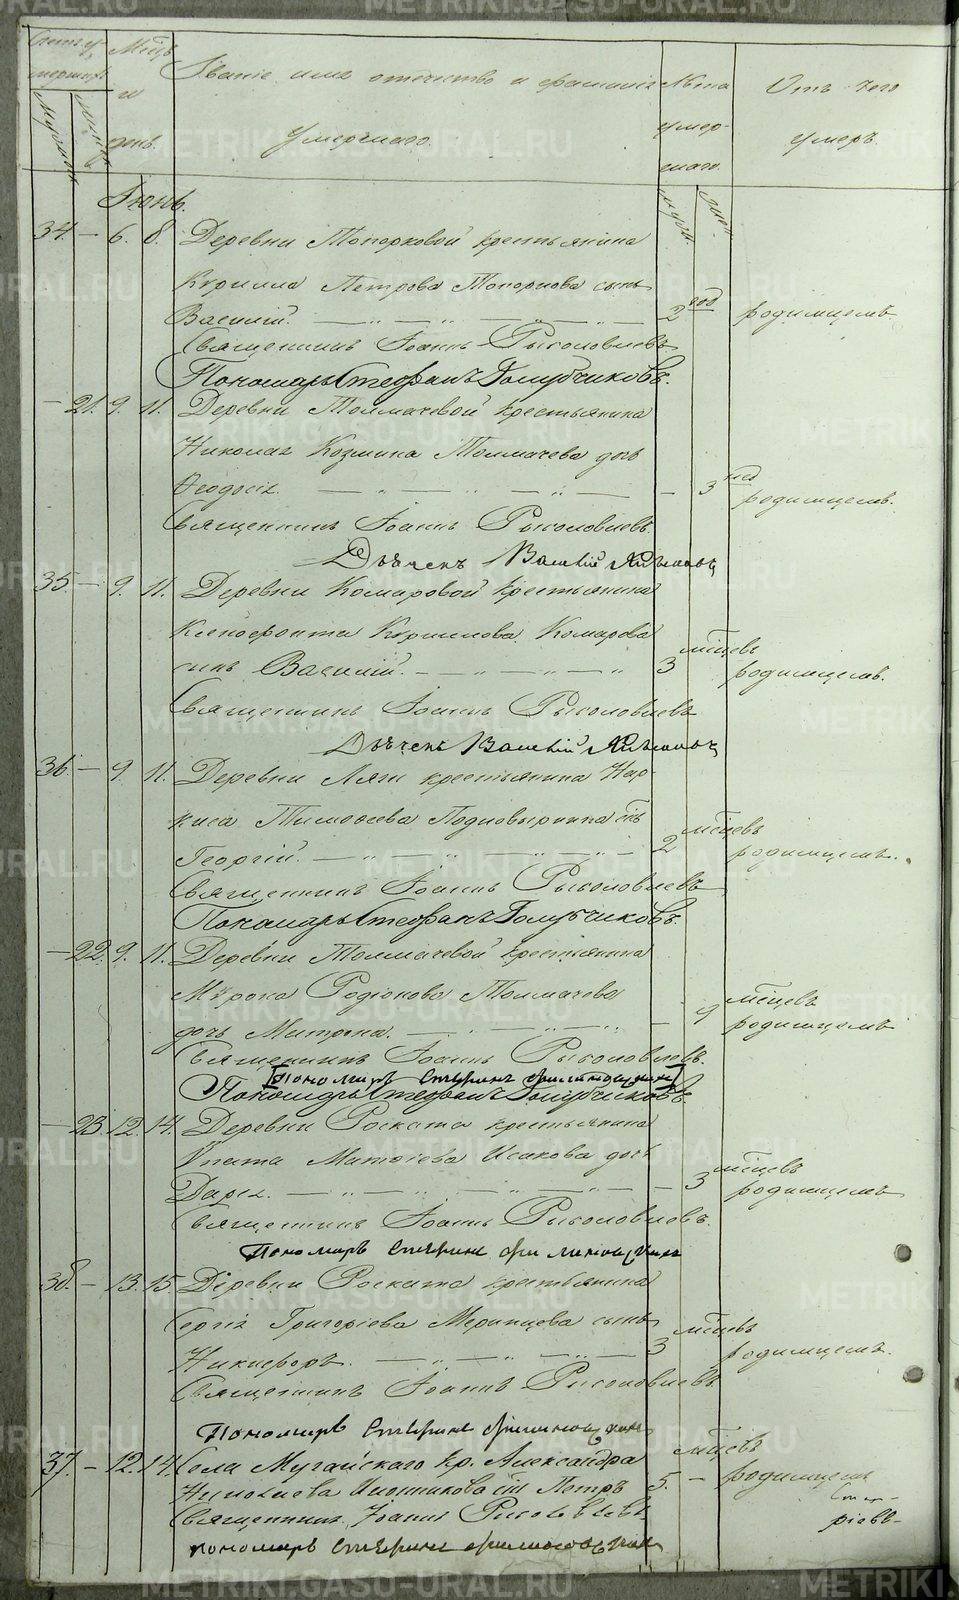 Счетъ умершихъ
Мѣсяцъ и день
Званіе, имя, отечество и фамилія умершаго.
Лѣта умершаго.
Отъ чего умеръ.
Мужск. Женск.
Іюнь.
муж. жен.
34. — 6. 8. Деревни Топорковой крестьянина
Кирилла Петрова Топоркова сынъ
Василій. 2 год родимцемъ.
Священникъ Іоаннъ Рыболовлевъ
Пономарь Стефанъ Голубчиковъ.
— 21. 9. 11. Деревни Толмачевой крестьянина
Николая Козмина Толмачева дочь
Ѳеодосія. — 3 нед родимцемъ.
Священникъ Іоаннъ Рыболовлевъ.
Дьячекъ Василій
35. — 9. 11. Деревни Комаровой крестьянина
Ксенофонта Кириллова Комарова
сынъ Василій. 3 мѣсцевъ родимцемъ.
Священникъ Іоаннъ Рыболовлевъ
Дьячекъ Василій
36. — 9. 11. Деревни Ляги крестьянина Нар-
киса Тимоѳеева Подковыркина сынъ
Георгій. 2 мѣсцевъ родимцемъ.
Священникъ Іоаннъ Рыболовлевъ
Пономарь Стефанъ Голубчиковъ.
— 22. 9. 11. Деревни Толмачевой крестьянина
Мирона Родіонова Толмачева
дочь Матрена. — 9 мѣсцевъ родимцемъ
Священникъ Іоаннъ Рыболовлевъ.
Пономарь
Пономарь Стефанъ Голубчиковъ.
— 23. 12. 14. Деревни Роската крестьянина
Ипата Матвѣева Исакова дочь
Дарья. — 3 мѣсцевъ родимцемъ
Священникъ Іоаннъ Рыболовлевъ.
Пономарь
38. — 13. 15. Деревни Роската крестьянина
Сергія Григоріева Меринцова сынъ
Никифоръ. 3 мѣсцевъ родимцемъ.
Священникъ Іоаннъ Рыболовлевъ.
Пономарь
37. — 12. 14. Села Мугайскаго кр. Александра
Николаева сынъ Петръ 5. — мѣсцевъ родимцемъ
Священникъ Іоаннъ Рыболовлевъ
пономарь
METRIKI.GASO-URAL.RU